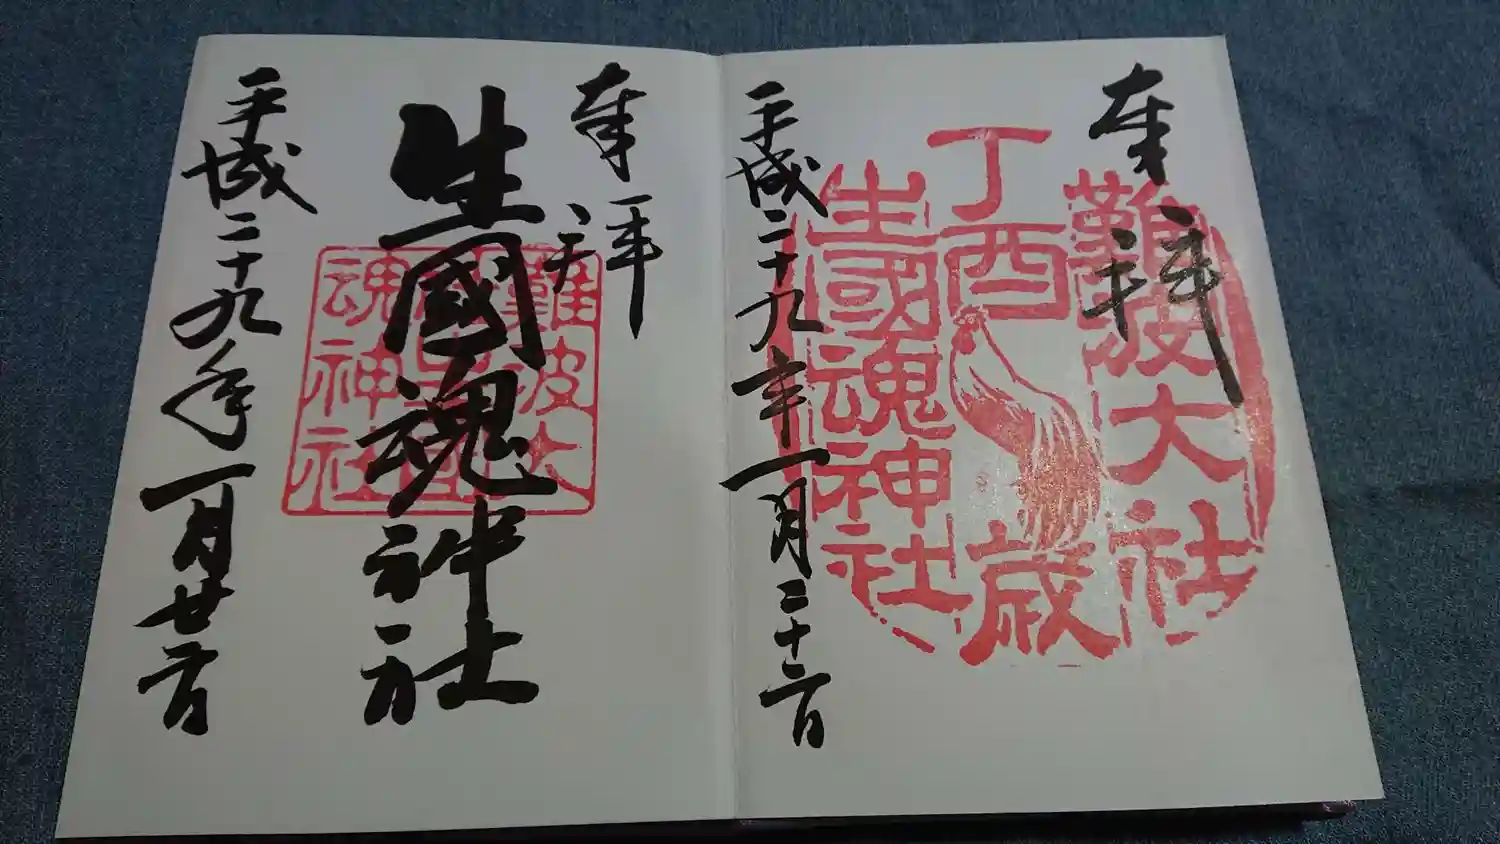 奉拝
難波大社
丁酉歳
生國魂神社
平成二十九年一月二十二日
奉拝
生國魂神社
難波大
魂神社
平成二十九年一月廿二日